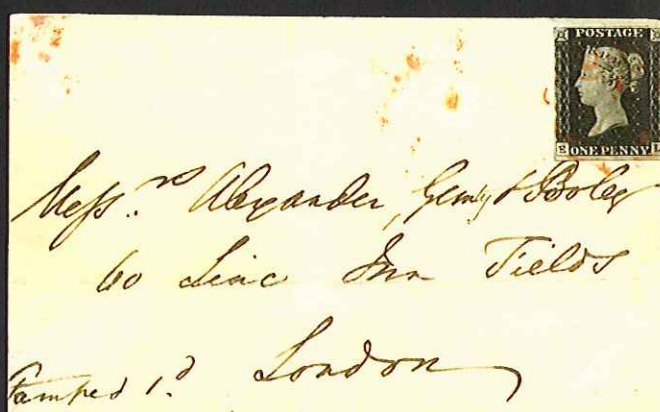 POSTAGE
ONE PENNY
Messrs. Alexander,
60 Linc Inn Fields
London
Stamped 1.d